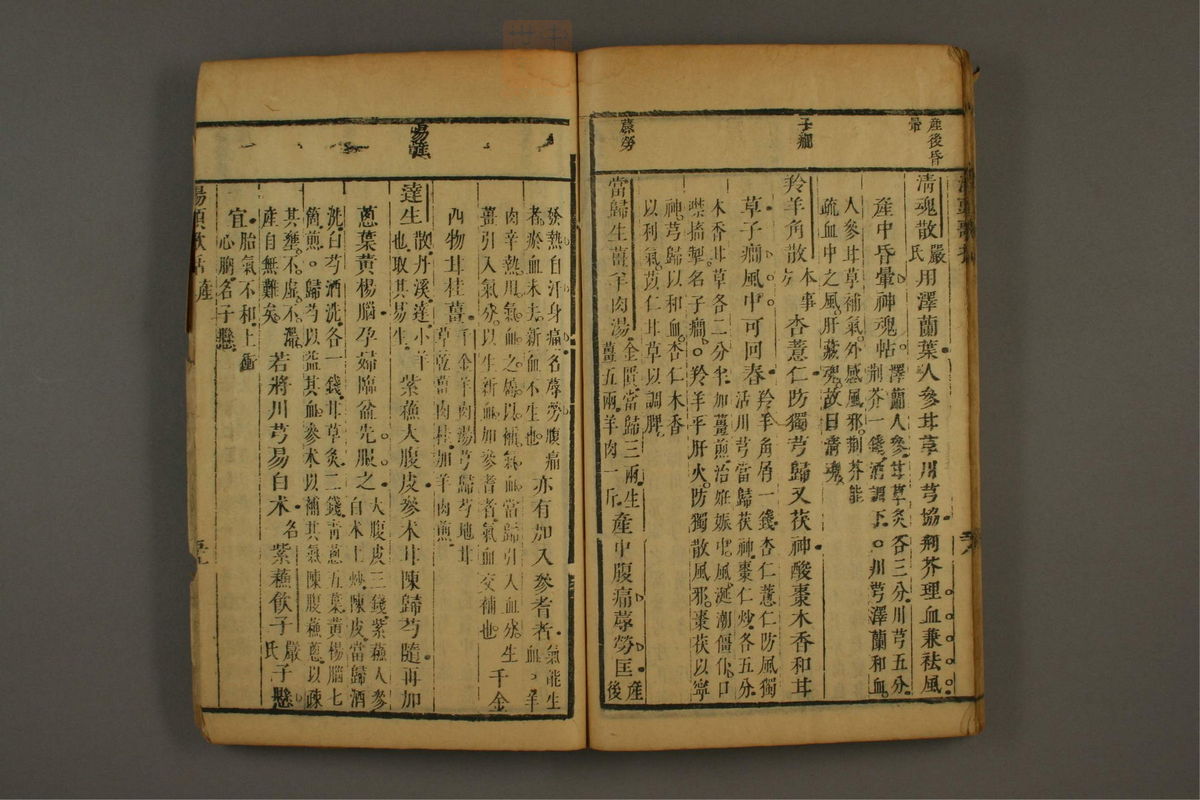 產後昏
暈
子癇
蓐勞
清魂散嚴氏用澤蘭葉人參甘草川芎協荊芥理血兼祛風
產中昏暈神魂帖澤蘭人參甘草炙各三分川芎五分
荊芥一錢酒調下川芎澤蘭和血
人參甘草補氣外感風邪荊芥能
疏血中之風肝藏魂故曰清魂
羚羊角散本事方杏薏仁防獨芎歸又茯神酸棗木香和甘
草子癇風中可回春羚羊角屑一錢杏仁薏仁防風獨
活川芎當歸茯神棗仁炒各五分
木香甘草各二分半加薑煎治妊娠中風涎潮僵仆口
噤搐掣名子癇羚羊平肝火防獨散風邪棗茯以寧
神芎歸以和血杏仁木香
以利氣苡仁甘草以調脾
當歸生薑羊肉湯金匱當歸三兩生
薑五兩羊肉一斤產中腹痛蓐勞匡產
後
易產
發熱自汗身痛名蓐勞腹痛
者瘀血未去新血不生也亦有加入參耆者氣能生
血羊
肉辛熱用氣血之屬以補氣血當歸引入血分生
薑引入氣分以生新血加參耆者氣血交補也千金
四物甘桂薑千金羊肉湯芎歸芍地甘
草乾薑肉桂加羊肉煎
達生散丹溪達小羊
也取其易生紫蘇大腹皮參朮甘陳歸芍隨再加
蔥葉黃楊腦孕婦臨盆先服之大腹皮三錢紫蘇人參
白朮土炒陳皮當歸酒
洗白芍酒洗各一錢甘草炙二錢青蔥五葉黃楊腦七
箇煎歸芍以益其血參朮以補其氣陳腹蘇蔥以疎
其壅不虛不滯
產自無難矣若將川芎易白朮名紫蘇飲子嚴氏子懸
宜胎氣不和上衝
心胸名子懸
湯頭歌括 產